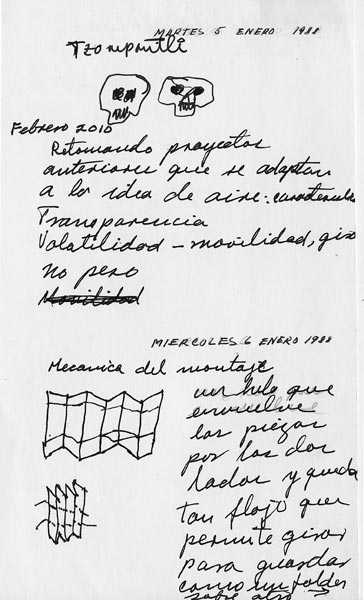 MARTES 5 ENERO 1988
Tzompantli
Febrero 2010
Retomando proyectos
anteriores que se adaptan
a la idea de aire: características
Transparencia
Volatilidad – movilidad, giro
no peso
Movilidad
MIERCOLES 6 ENERO 1988
Mecanica del montaje
un hilo que
envuelve
las piezas
por los dos
lados y queda
tan flojo que
permite girar
para guardar
como un folder
sobre otro →